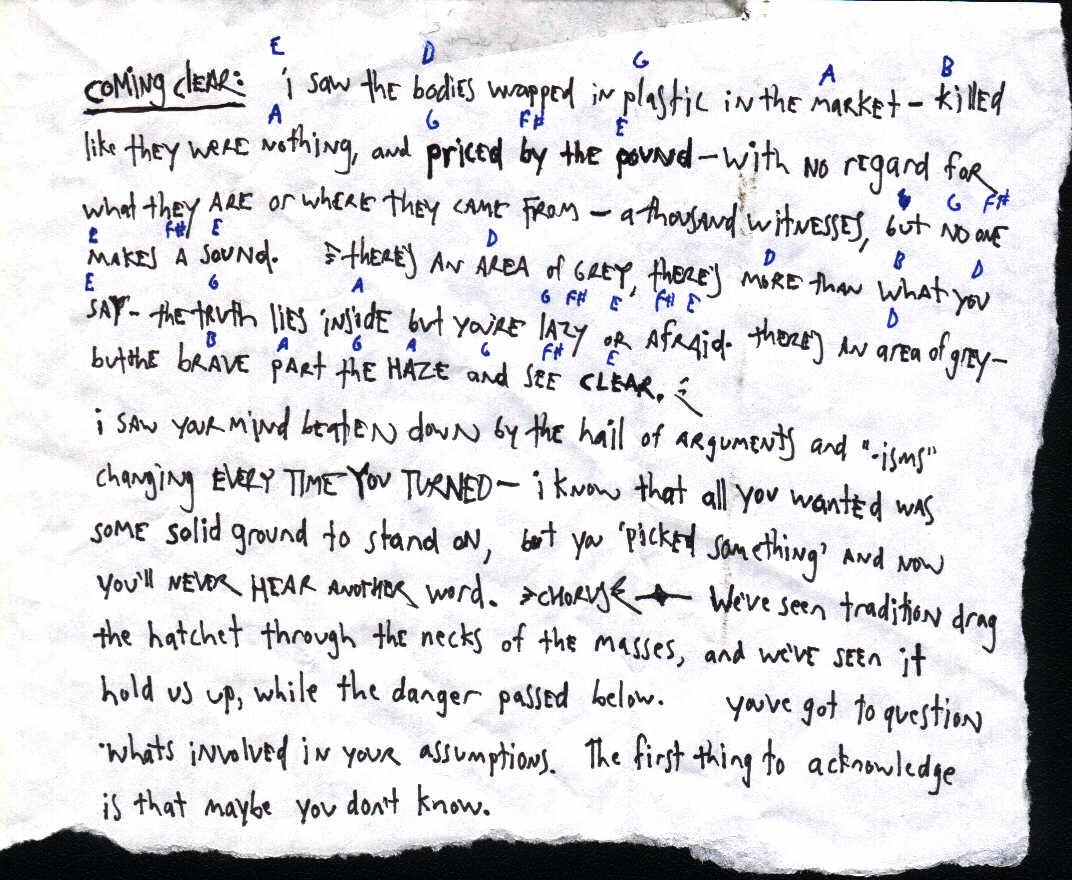 E D G A B
COMING CLEAR: i saw the bodies wrapped in plastic in the market - killed
A G F# E
like they were nothing, and priced by the pound - with no regard for
what they ARE or where they came from - a thousand witnesses, but no one
G F#
E F# E D D B D
makes a sound. there's an area of grey, there's more than what you
E G A G F# E F# E D
say - the truth lies inside but you're lazy or afraid. there's an area of grey -
B A G A G F# E
but the brave part the haze and see clear.
i saw your mind beaten down by the hail of arguments and "-isms"
changing EVERY TIME YOU TURNED - i know that all you wanted was
some solid ground to stand on, but you 'picked something' and now
you'll never hear another word. CHORUS We've seen tradition drag
the hatchet through the necks of the masses, and we've seen it
hold us up, while the danger passed below. you've got to question
whats involved in your assumptions. The first thing to acknowledge
is that maybe you don't know.